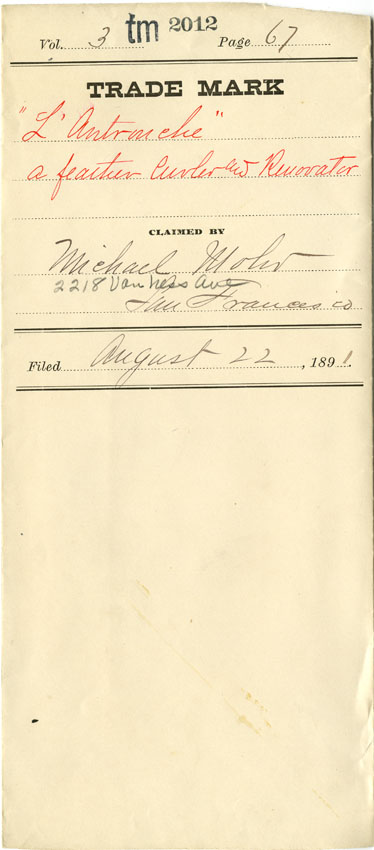 tm 2012
Vol. 3 Page 67
TRADE MARK
"L'Antrouche"
a feather Curler and Renovator
CLAIMED BY
Michael Mohr
2218 Van Ness Ave
San Francisco
Filed August 22, 1891.